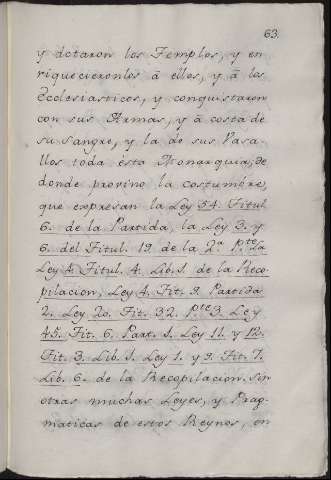 63.
y dotaron los Templos, y en
riquecieronlos â ellos, y â los
Ecclesiasticos, y conquistaron
con sus Armas, y â costa de
su sangre, y la de sus Vasa-
llos toda esta Monarquia, de
donde provino la costumbre,
que expresan la Ley 54. Titul.
6. de la Partida, la Ley 3. y
6. del Titul. 19. de la 2ª Ptte La
Ley 4. Titul. 4. Lib. 1. de la Reco-
pilacion, Ley 4. Tit. 9. Partida
2. Ley 20. Tit. 32. Pte 3. Ley
45. Tit. 6. Part. 1. Ley 11. y 12.
Tit. 3. Lib. 1. Ley 1. y 9. Tit. 7.
Lib. 6. de la Recopilacion sin
otras muchas Leyes, y Prag-
maticas de estos Reynos, en